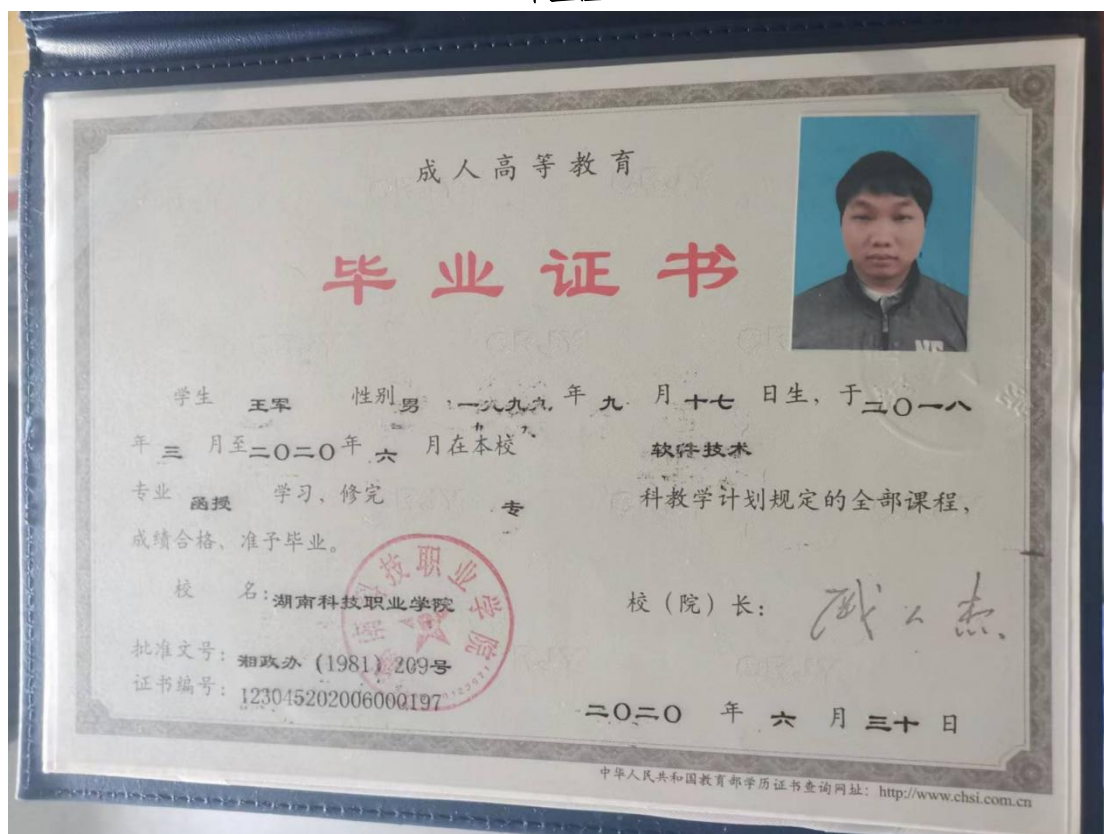 成人高等教育
毕业证书
学生 王军 性别 男 ,一九九九 年 九 月 十七 日生，于二〇一八
年 三 月至二〇二〇年 六 月在本校 软件技术
专业 函授 学习、修完 专 科教学计划规定的全部课程，
成绩合格、准予毕业。
校 名：湖南科技职业学院 校（院）长：
批准文号：湘政办（1981）209号
证书编号：123045202006000197
二〇二〇 年 六 月 三十 日
中华人民共和国教育部学历证书查询网址：http://www.chsi.com.cn